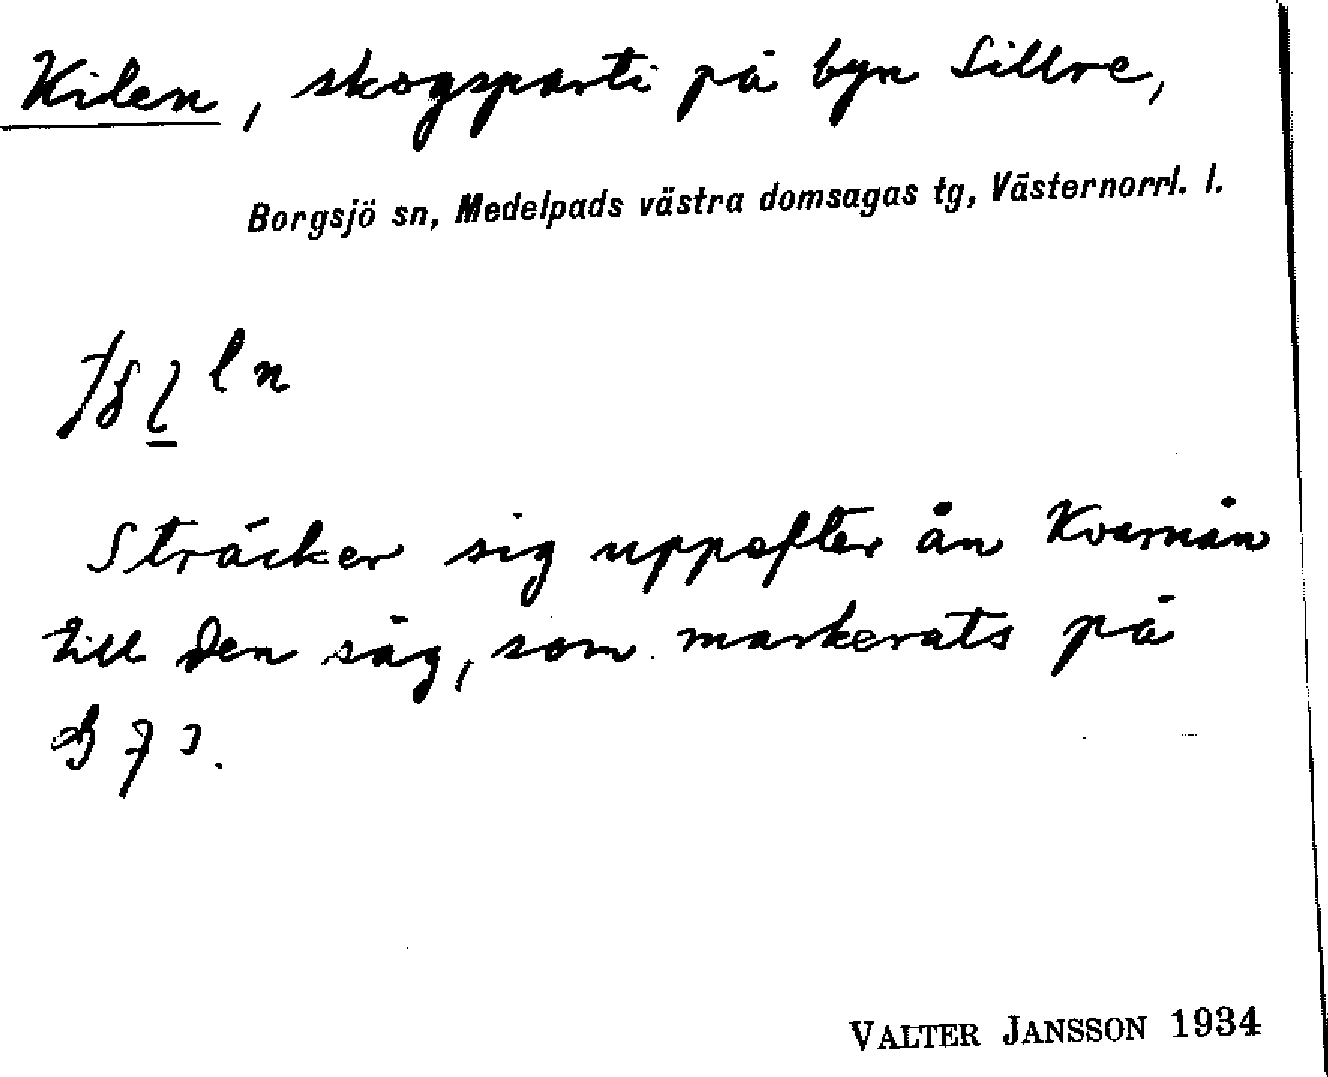 Kilen, skogsparti på byn Sillre,
Borgsjö sn, Medelpads västra domsagas tg, Västernorrl. l.
Sträcker sig uppefter ån Kvarnån
till den såg, som markerats på
VALTER JANSSON 1934